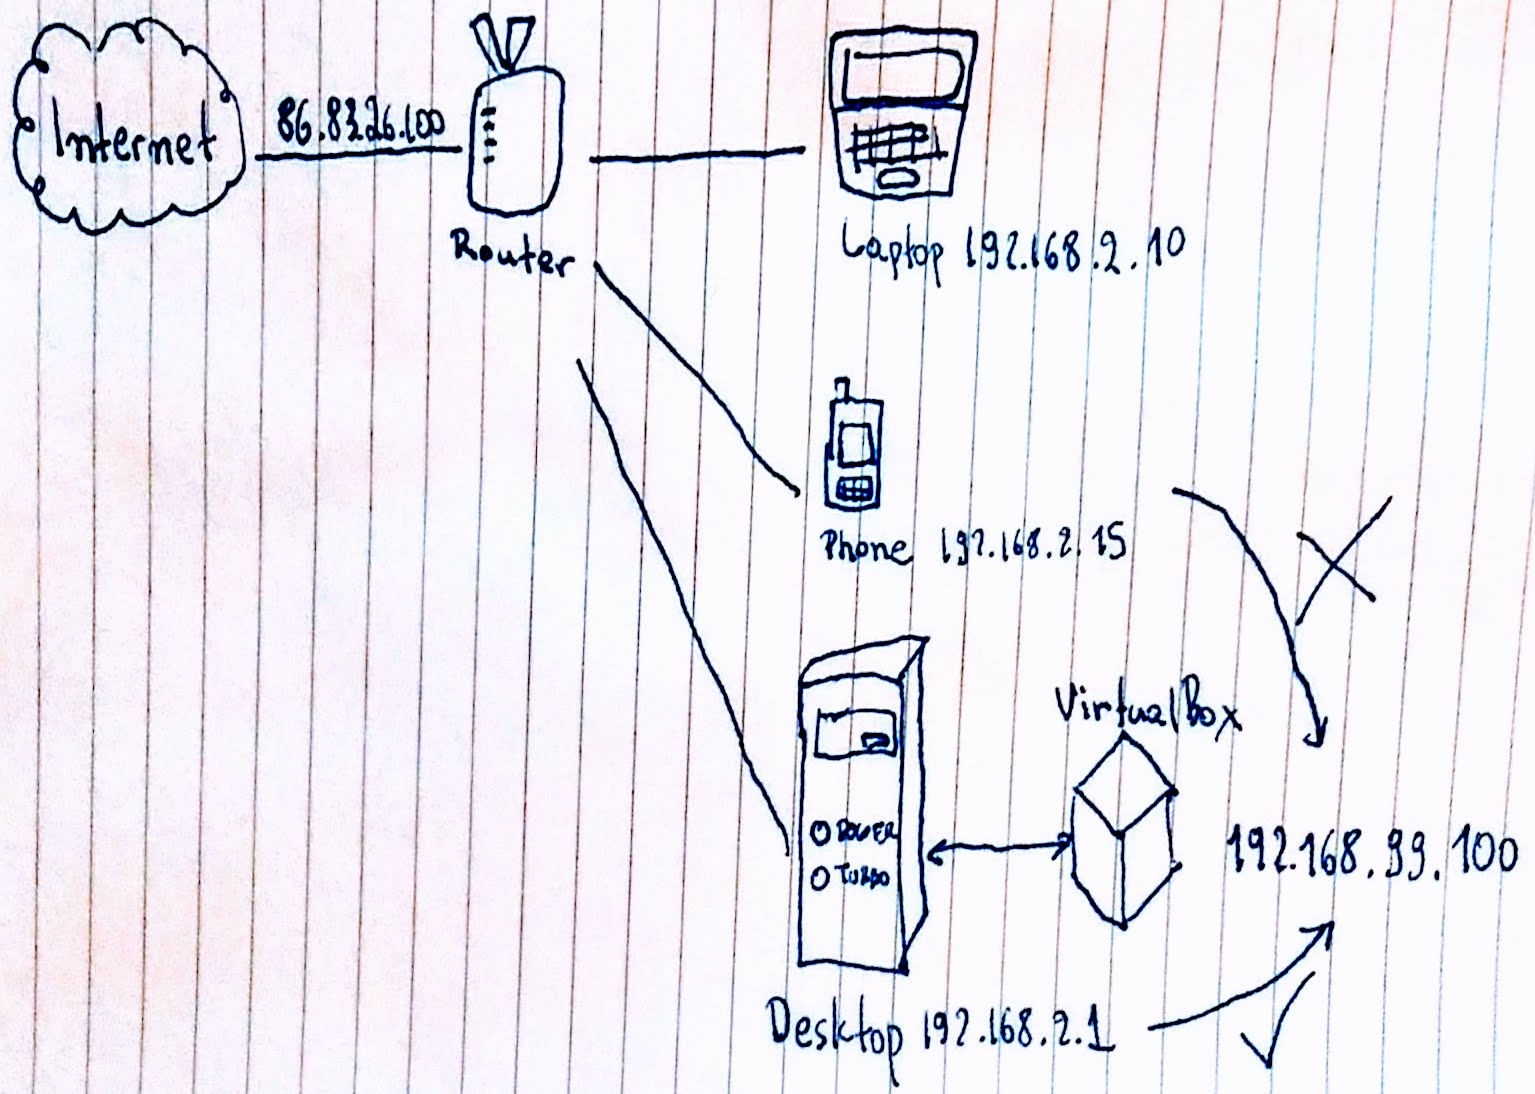 Internet
86.83.26.100
Router
Laptop 192.168.2.10
Phone 192.168.2.15
VirtualBox
POWER
TURBO
192.168.99.100
Desktop 192.168.2.1